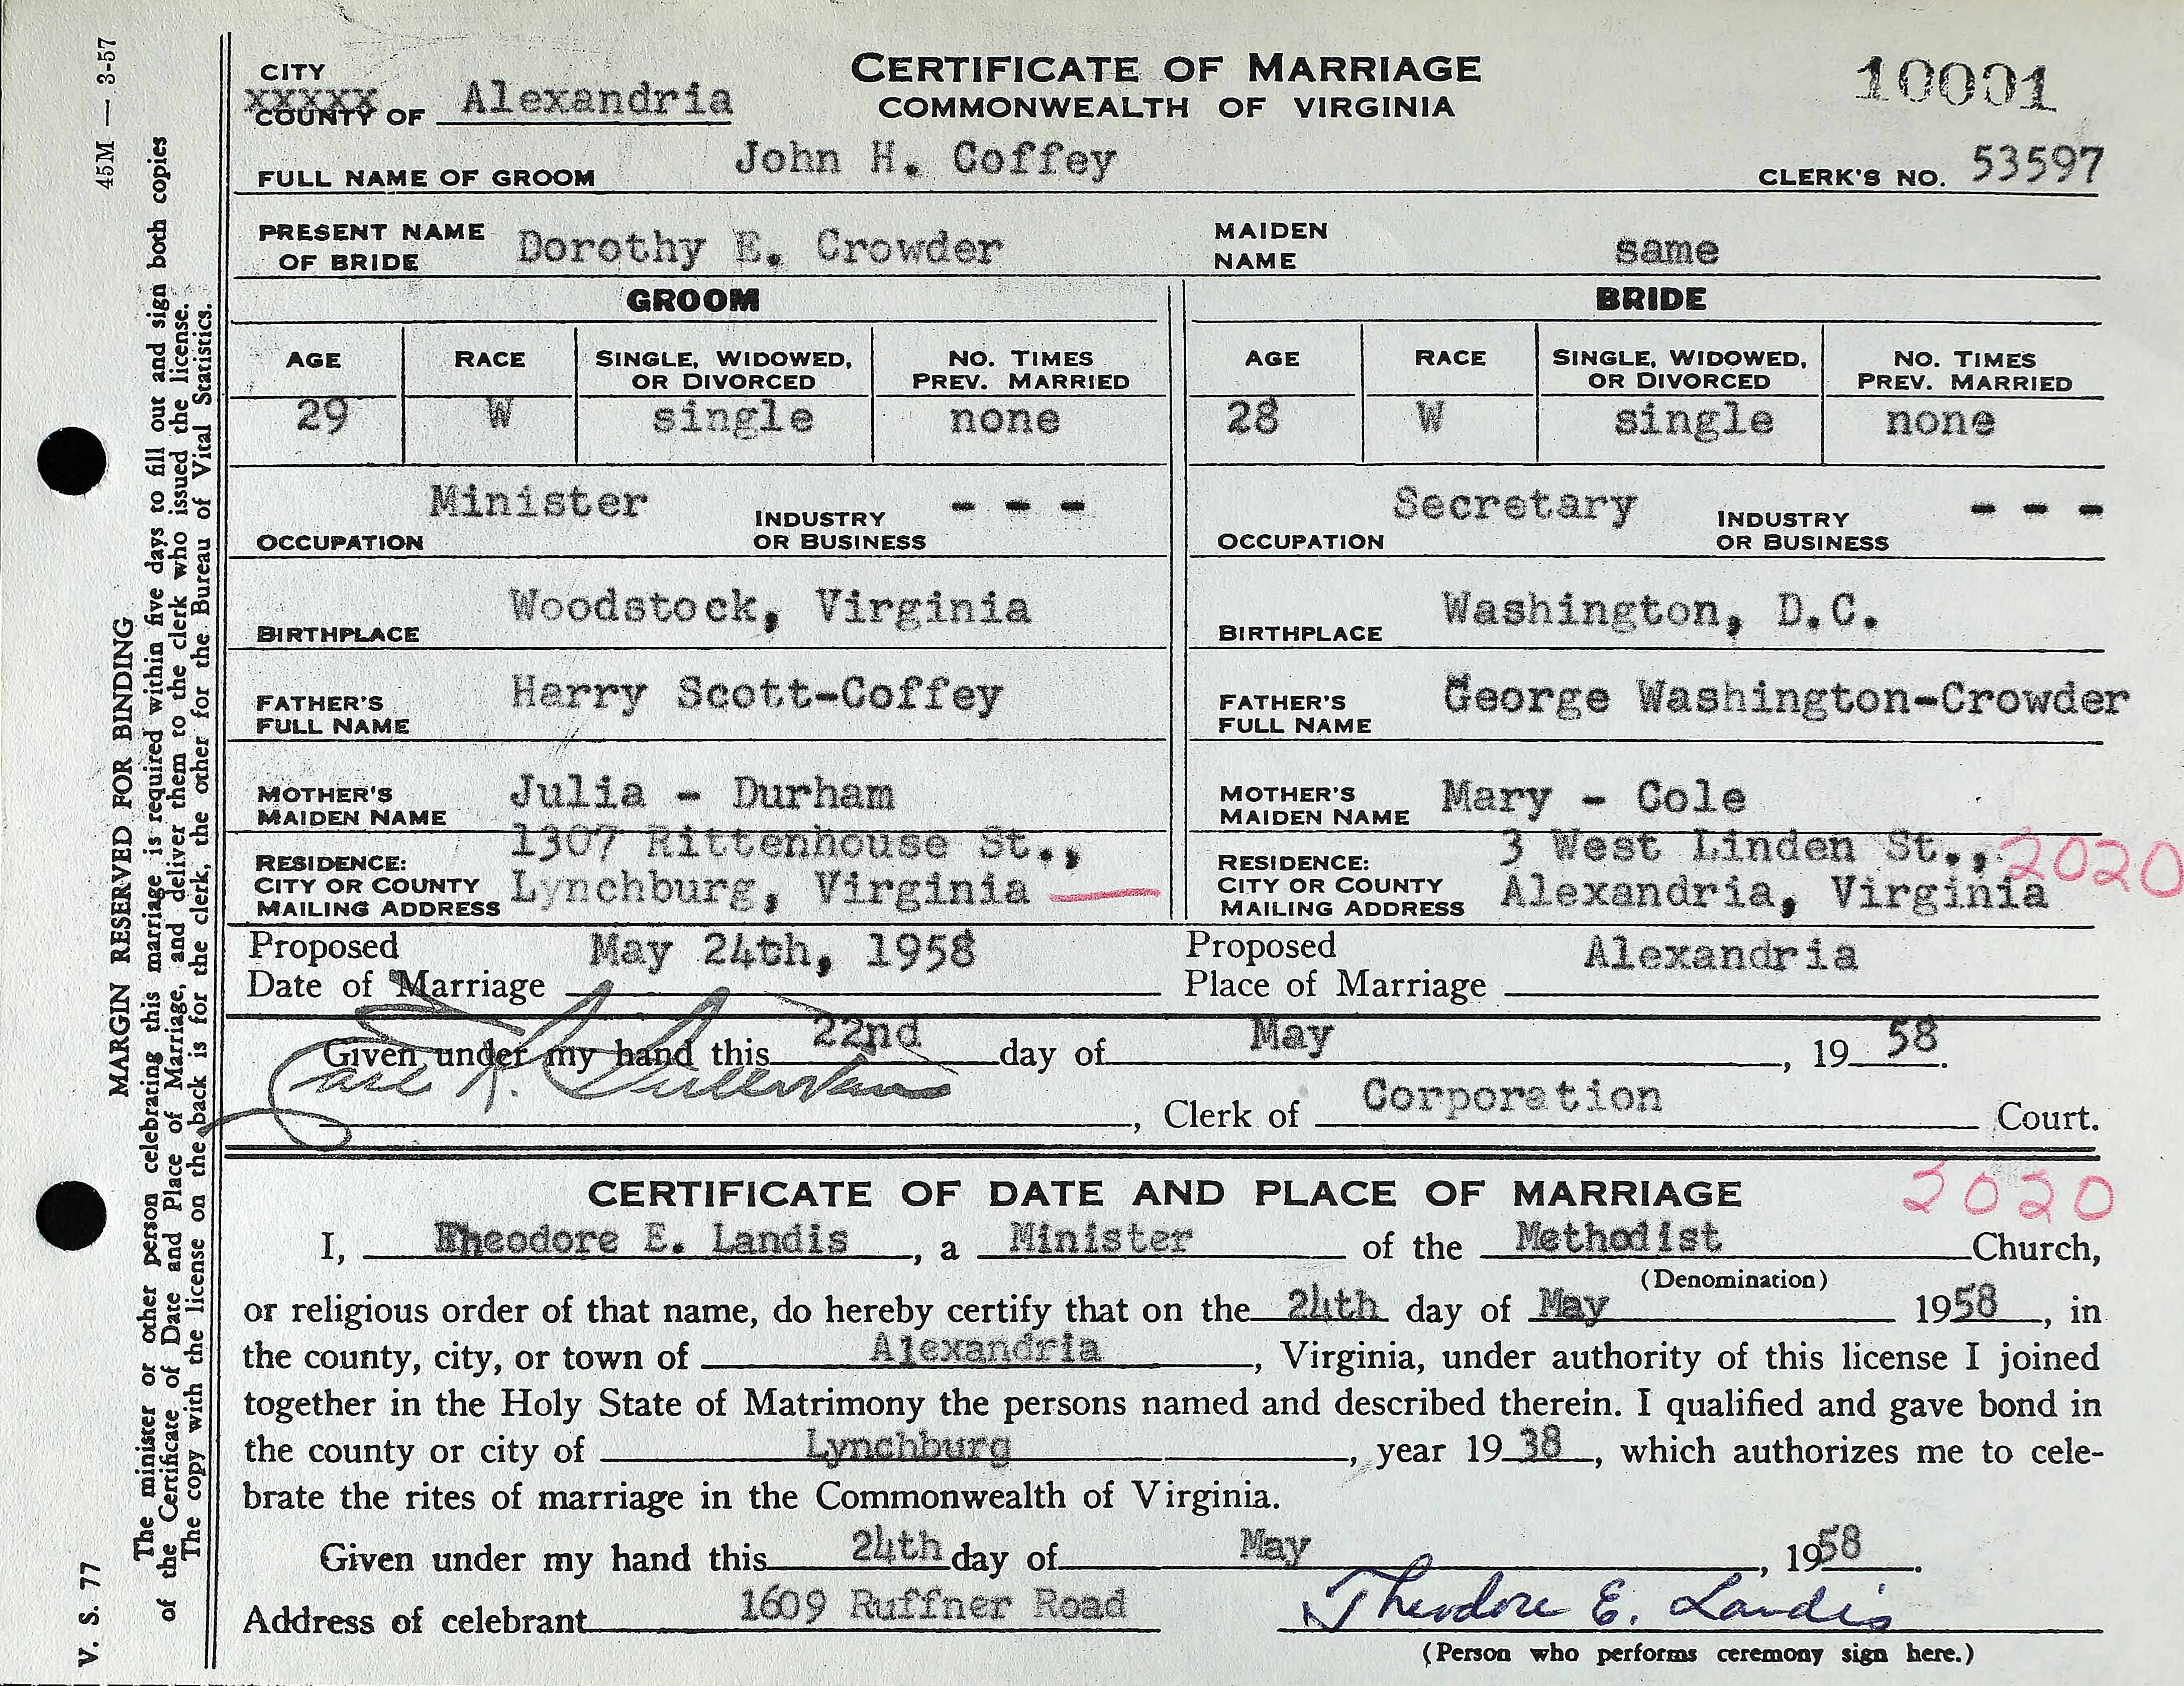 45M — 3-57
CERTIFICATE OF MARRIAGE
COMMONWEALTH OF VIRGINIA
10001
CITY
XXXXX
COUNTY OF Alexandria
FULL NAME OF GROOM John H. Coffey CLERK'S NO. 53597
PRESENT NAME OF BRIDE Dorothy E. Crowder MAIDEN NAME same
GROOM BRIDE
AGE RACE SINGLE, WIDOWED, OR DIVORCED NO. TIMES PREV. MARRIED AGE RACE SINGLE, WIDOWED, OR DIVORCED NO. TIMES PREV. MARRIED
29 W single none 28 W single none
OCCUPATION Minister INDUSTRY OR BUSINESS - - - OCCUPATION Secretary INDUSTRY OR BUSINESS - - -
BIRTHPLACE Woodstock, Virginia BIRTHPLACE Washington, D.C.
FATHER'S FULL NAME Harry Scott-Coffey FATHER'S FULL NAME George Washington-Crowder
MOTHER'S MAIDEN NAME Julia - Durham MOTHER'S MAIDEN NAME Mary - Cole
RESIDENCE: CITY OR COUNTY MAILING ADDRESS 1307 Rittenhouse St., Lynchburg, Virginia RESIDENCE: CITY OR COUNTY MAILING ADDRESS 3 West Linden St., Alexandria, Virginia 2020
Proposed Date of Marriage May 24th, 1958 Proposed Place of Marriage Alexandria
Given under my hand this 22nd day of May, 1958.
, Clerk of Corporation Court.
CERTIFICATE OF DATE AND PLACE OF MARRIAGE 2020
I, Theodore E. Landis, a Minister of the Methodist Church,
(Denomination)
or religious order of that name, do hereby certify that on the 24th day of May 1958, in
the county, city, or town of Alexandria, Virginia, under authority of this license I joined
together in the Holy State of Matrimony the persons named and described therein. I qualified and gave bond in
the county or city of Lynchburg, year 1938, which authorizes me to cele-
brate the rites of marriage in the Commonwealth of Virginia.
Given under my hand this 24th day of May, 1958.
Address of celebrant 1609 Ruffner Road Theodore E. Landis
(Person who performs ceremony sign here.)
V. S. 77
MARGIN RESERVED FOR BINDING
The minister or other person celebrating this marriage is required within five days to fill out and sign both copies
of the Certificate of Date and Place of Marriage, and deliver them to the clerk who issued the license.
The copy with the license on the back is for the clerk, the other for the Bureau of Vital Statistics.